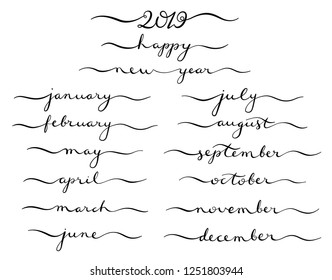 2019
happy
new year
january
february
may
april
march
june
july
august
september
october
november
december
shutterstock.com · 1251803944